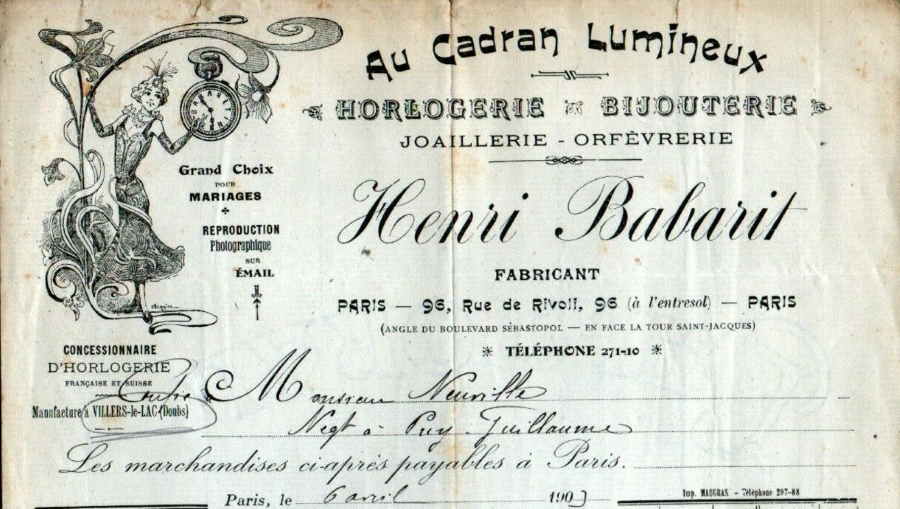 Au Cadran Lumineux
HORLOGERIE BIJOUTERIE
JOAILLERIE - ORFÈVRERIE
Henri Babarit
FABRICANT
PARIS — 96, Rue de Rivoli, 96 (à l'entresol) — PARIS
(ANGLE DU BOULEVARD SÉBASTOPOL — EN FACE LA TOUR SAINT-JACQUES)
TÉLÉPHONE 271-10
Grand Choix
POUR
MARIAGES
REPRODUCTION
Photographique
SUR
ÉMAIL
CONCESSIONNAIRE
D'HORLOGERIE
FRANÇAISE ET SUISSE
Manufacture à VILLERS-le-LAC (Doubs)
Monsieur Neuville
Negt à Puy-Guillaume
Les marchandises ci-après payables à Paris.
Paris, le 6 avril 1903
Imp. MAUGRAS - Téléphone 297-88